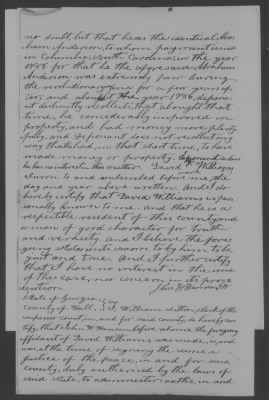 no doubt but that he is the identical Abra-
ham Anderson, to whom payment issued
in Columbia, South Carolina in the year
1786 for that he the aforesaid Abraham
Anderson was extremely poor during
the revolutionary war for a few years af-
ter, and about the year 1786, depon-
ent distinctly recollects, that about that
time, he considerably improved in
property, and had money more plenti-
fully, and Deponent does not recollect any
way that he had, in that short time, to have
made money or property. Deponent declares
he has no interest in this matter. David Williams
Sworn to and subscribed before me, the
day and year above written. And I do
hereby certify that David Williams is per-
sonally known to me, and that he is a
respectible resident of this county and
a man of good character for truth
and veracity, and I believe the fore-
going statements sworn to by him to be
just and true. And I further certify
that I have no interest in the issue
of this case, nor concern in its prose-
cution
State of Georgia
County of Hall, I, William
superior court, in and for said county, do hereby cer-
tify, that John W. before whom the foregoing
affidavit of David Williams was made, is, and
was at the time of signing the same, a
justice of the peace, in and for said
county, duly authorised by the laws of
said state, to administer oaths, in and